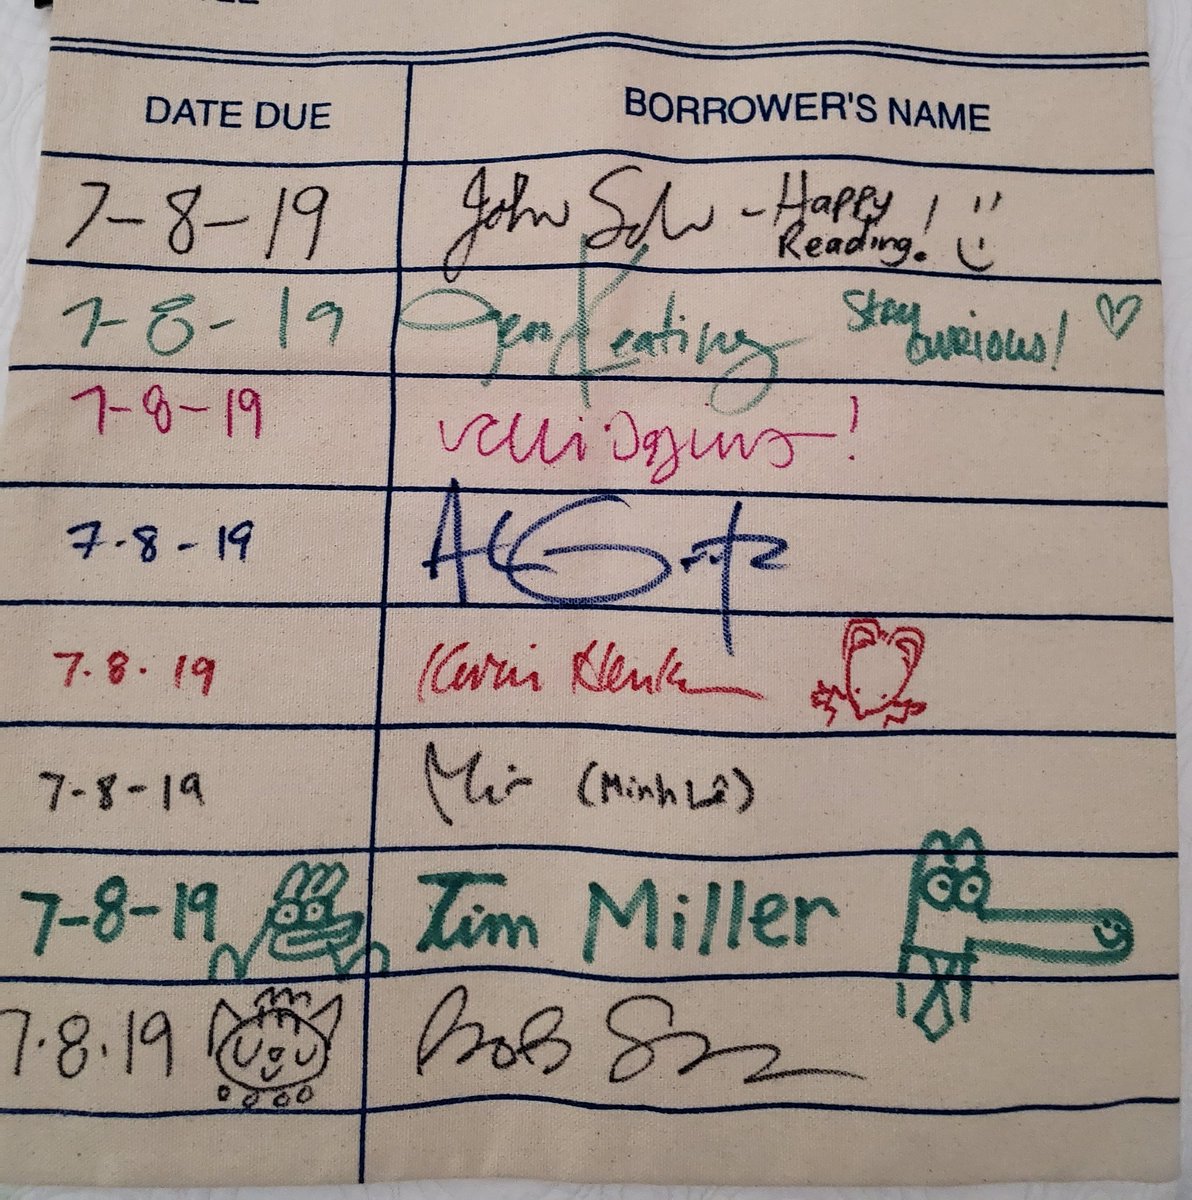 DATE DUE BORROWER'S NAME
7-8-19 John - Happy
Reading! !
7-8-19 Jess Keating Stay
curious!
7-8-19 !
7.8-19
7.8.19 Kevin Henkes
7-8-19 Minh (Minh Lê)
7-8-19 Tim Miller
7.8.19 Bob